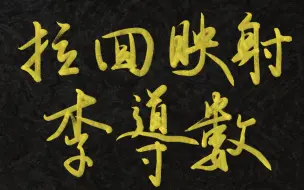 拉回映射
李導數